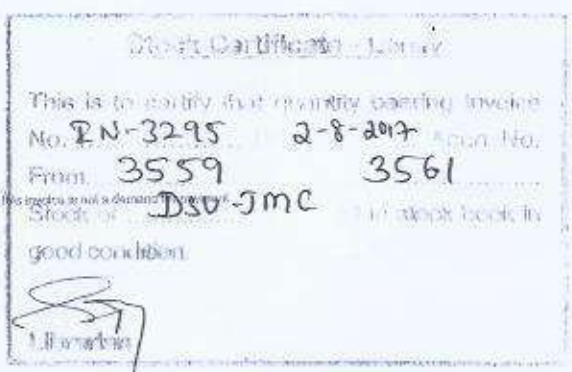 Stock Certificate - Library
This is to certify that quantity bearing Invoice
No. RN-3295 2-8-2017 Accn. No.
From 3559 3561
This invoice is not a demand for payment.
Stock of DSV-JMC in stock book in
good condition.
Librarian